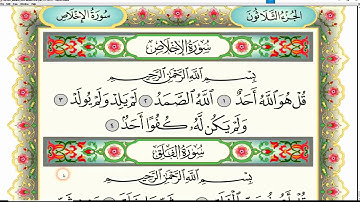 الجزء الثلاثون
سورة الإخلاص
سُورَةُ الإِخْلَاصِ
بِسْمِ اللَّهِ الرَّحْمَٰنِ الرَّحِيمِ
قُلْ هُوَ اللَّهُ أَحَدٌ ١ اللَّهُ الصَّمَدُ ٢ لَمْ يَلِدْ وَلَمْ يُولَدْ ٣
وَلَمْ يَكُن لَّهُ كُفُوًا أَحَدٌ ٤
سُورَةُ الفَلَقِ
بِسْمِ اللَّهِ الرَّحْمَٰنِ الرَّحِيمِ